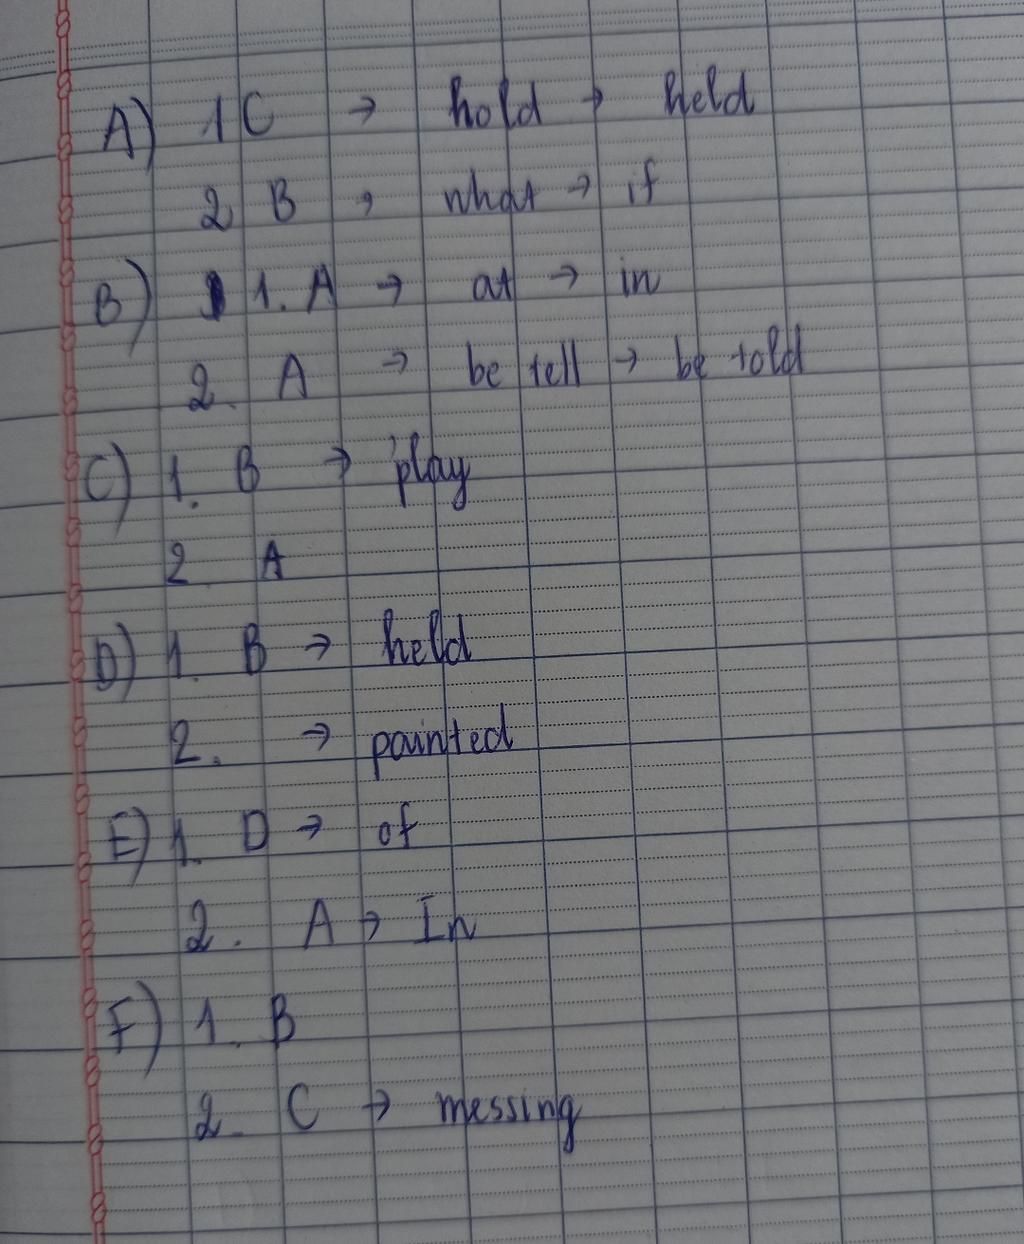 A) 1 C → hold → held
2 B → what → if
B) 1. A → at → in
2. A → be tell → be told
C) 1. B → play
2 A
D) 1. B → held
2. → painted
E) 1. D → of
2. A → In
F) 1. B
2. C → messing